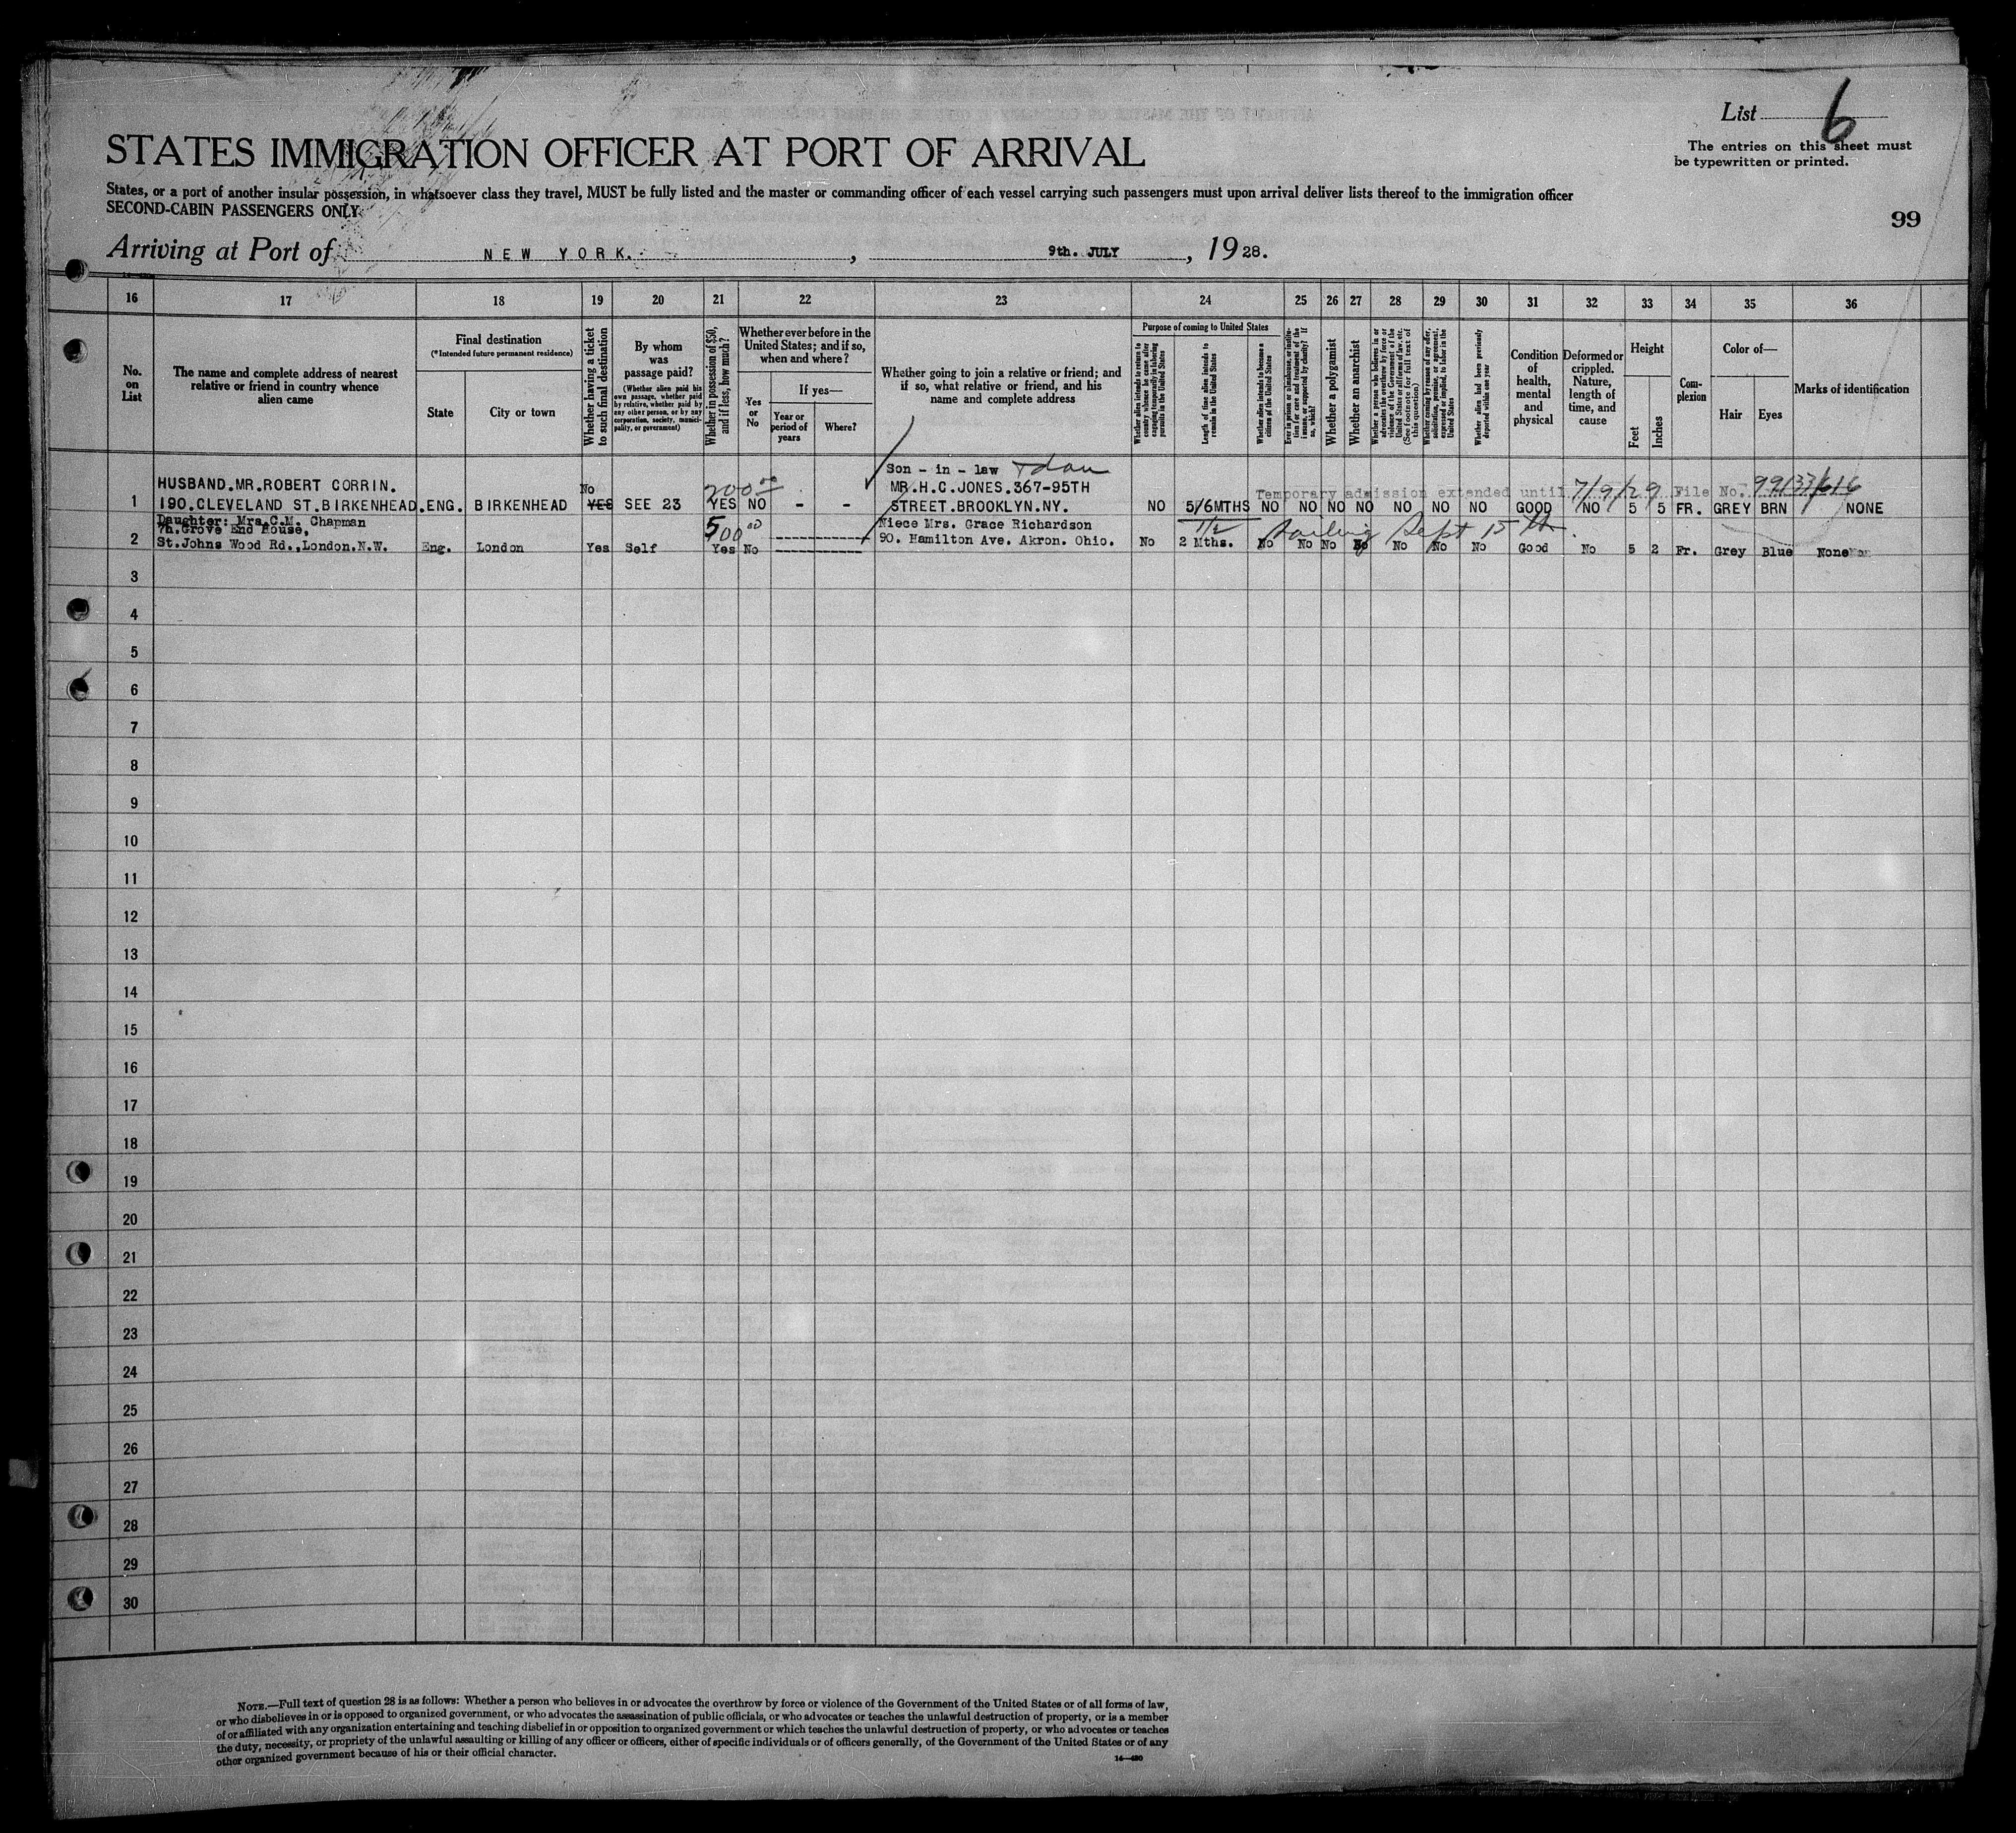 List 6
The entries on this sheet must
be typewritten or printed.
STATES IMMIGRATION OFFICER AT PORT OF ARRIVAL
States, or a port of another insular possession, in whatsoever class they travel, MUST be fully listed and the master or commanding officer of each vessel carrying such passengers must upon arrival deliver lists thereof to the immigration officer
SECOND-CABIN PASSENGERS ONLY
99
Arriving at Port of NEW YORK. , 9th. JULY , 1928.
16 17 18 19 20 21 22 23 24 25 26 27 28 29 30 31 32 33 34 35 36
No. on List
The name and complete address of nearest relative or friend in country whence alien came
Final destination
(*Intended future permanent residence)
State
City or town
Whether having a ticket to such final destination
By whom was passage paid?
(Whether alien paid his own passage, whether paid by relative, whether paid by any other person, or by any corporation, society, municipality, or government)
Whether in possession of $50, and if less, how much?
Whether ever before in the United States; and if so, when and where?
Yes or No
If yes—
Year or period of years
Where?
Whether going to join a relative or friend; and if so, what relative or friend, and his name and complete address
Purpose of coming to United States
Whether alien intends to return to country whence he came after engaging temporarily in laboring pursuits in the United States
Length of time alien intends to remain in the United States
Whether alien intends to become a citizen of the United States
Ever in prison or almshouse, or institution for care and treatment of the insane, or supported by charity? If so, which?
Whether a polygamist
Whether an anarchist
Whether a person who believes in or advocates the overthrow by force or violence of the Government of the United States or all forms of law, etc. (See footnote for full text of this question)
Whether coming by reason of any offer, solicitation, promise, or agreement, expressed or implied, to labor in the United States
Whether alien had been previously deported within one year
Condition of health, mental and physical
Deformed or crippled. Nature, length of time, and cause
Height
Feet
Inches
Complexion
Color of—
Hair
Eyes
Marks of identification
Son - in - law + dau
HUSBAND.MR.ROBERT CORRIN. No 200 00 MR.H.C.JONES.367-95TH Temporary admission extended until 7/9/29 File No. 99133/616
1 190.CLEVELAND ST.BIRKENHEAD.ENG. BIRKENHEAD YES SEE 23 YES NO - - STREET.BROOKLYN.NY. NO 5/6MTHS NO NO NO NO NO NO NO GOOD NO 5 5 FR. GREY BRN NONE
Daughter: Mrs.C.M. Chapman
7h.Grove End House, 500 00 Niece Mrs. Grace Richardson 1/2 Sailing Sept 15th
2 St.Johns Wood Rd.,London.N.W. Eng. London Yes Self Yes No 90. Hamilton Ave. Akron. Ohio. No 2 Mths. No No No No No No No Good No 5 2 Fr. Grey Blue None
3
4
5
6
7
8
9
10
11
12
13
14
15
16
17
18
19
20
21
22
23
24
25
26
27
28
29
30
NOTE.—Full text of question 28 is as follows: Whether a person who believes in or advocates the overthrow by force or violence of the Government of the United States or of all forms of law,
or who disbelieves in or is opposed to organized government, or who advocates the assassination of public officials, or who advocates or teaches the unlawful destruction of property, or is a member
of or affiliated with any organization entertaining and teaching disbelief in or opposition to organized government or which teaches the unlawful destruction of property, or who advocates or teaches
the duty, necessity, or propriety of the unlawful assaulting or killing of any officer or officers, either of specific individuals or of officers generally, of the Government of the United States or of any
other organized government because of his or their official character.
14—490